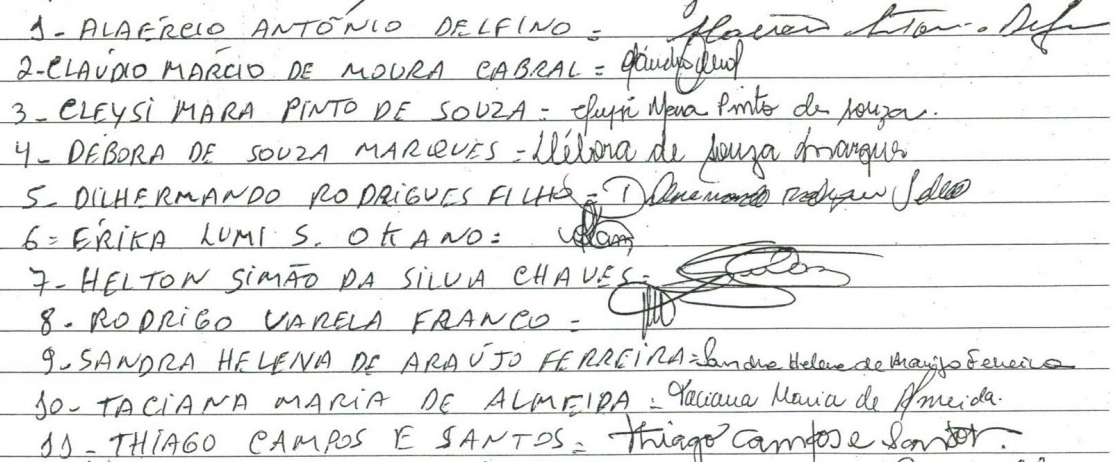 1- ALAÉRCIO ANTÔNIO DELFINO =
2-CLAÚDIO MARCIO DE MOURA CABRAL =
3- CLEYSI MARA PINTO DE SOUZA = Cleysi Mara Pinto de Souza.
4- DEBORA DE SOUZA MARQUES = Débora de Souza Marques
5- DILHERMANDO RODRIGUES FILHO =
6= ERIKA LUMI S. OKANO =
7- HELTON SIMÃO DA SILVA CHAVES =
8- RODRIGO VARELA FRANCO =
9- SANDRA HELENA DE ARAÚJO FERREIRA = Sandra Helena de Araújo Ferreira
10- TACIANA MARIA DE ALMEIDA = Taciana Maria de Almeida.
11- THIAGO CAMPOS E SANTOS = Thiago Campos e Santos.